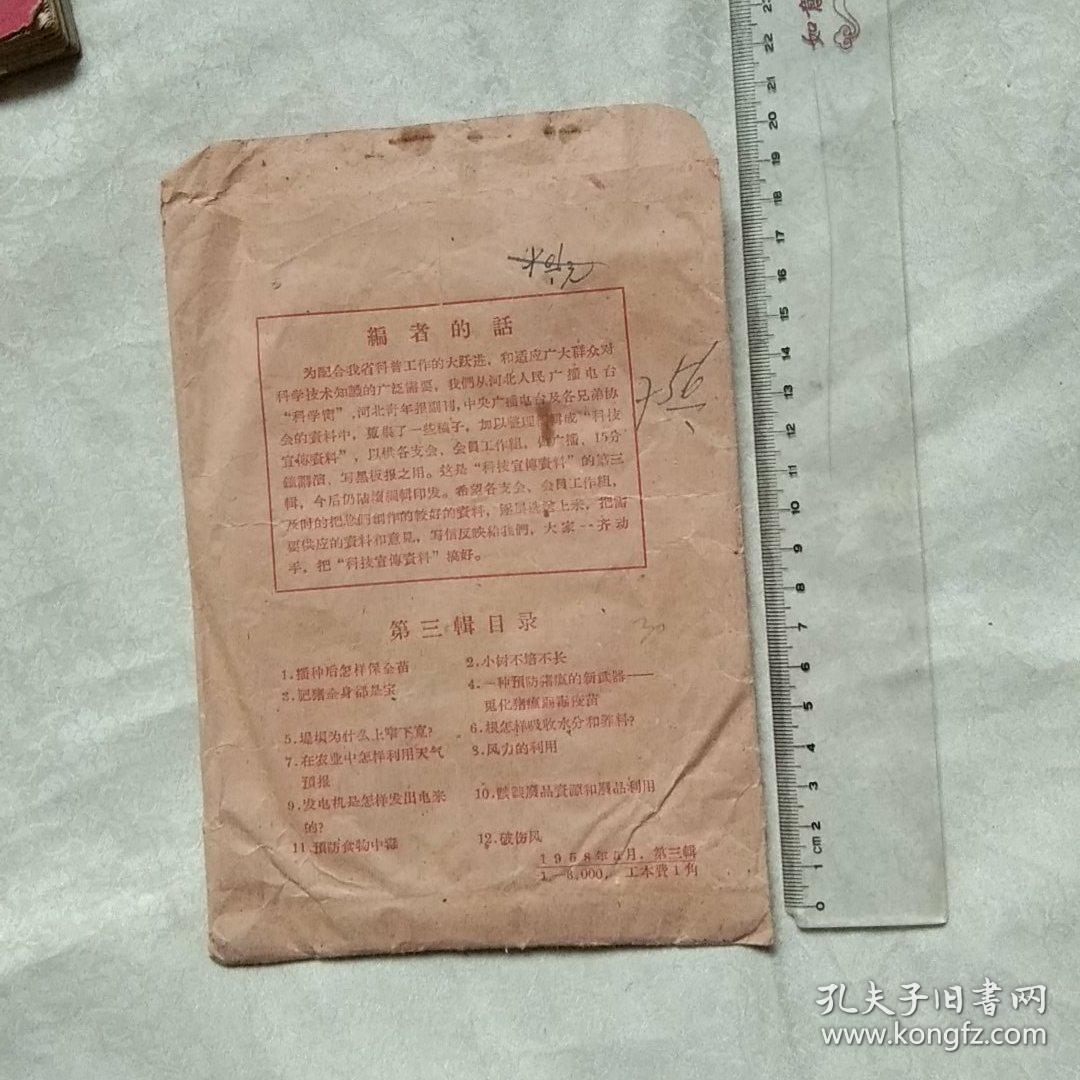 編者的話
为配合我省科普工作的大跃进，和适应广大群众对
科学技术知識的广泛需要，我們从河北人民广播电台
“科学窗”，河北青年报副刊，中央广播电台及各兄弟协
会的資料中，蒐集了一些稿子，加以整理編輯成“科技
宣傳資料”，以供各支会、会員工作組，做广播、15分
鐘講演、写黑板报之用。这是“科技宣傳資料”的第三
輯，今后仍陆續編輯印发。希望各支会、会員工作組，
及时的把您們創作的較好的資料，逐层选送上来，把需
要供应的資料和意見，写信反映給我們，大家一齐动
手，把“科技宣傳資料”搞好。
第三輯目录
1.播种后怎样保全苗
2.小树不培不长
3.肥猪全身都是宝
4.一种預防猪瘟的新武器——
兎化猪瘟弱毒疫苗
5.堤埧为什么上窄下寬？
6.根怎样吸收水分和养料？
7.在农业中怎样利用天气
預报
8.风力的利用
9.发电机是怎样发出电来
的？
10.談談廢品資源和廢品利用
11.預防食物中毒
12.破伤风
1958年 月，第三輯
1—8,000， 工本費1角
如意
孔夫子旧书网
www.kongfz.com
0 1cm 2 3 4 5 6 7 8 9 10 11 12 13 14 15 16 17 18 19 20 21 22 23